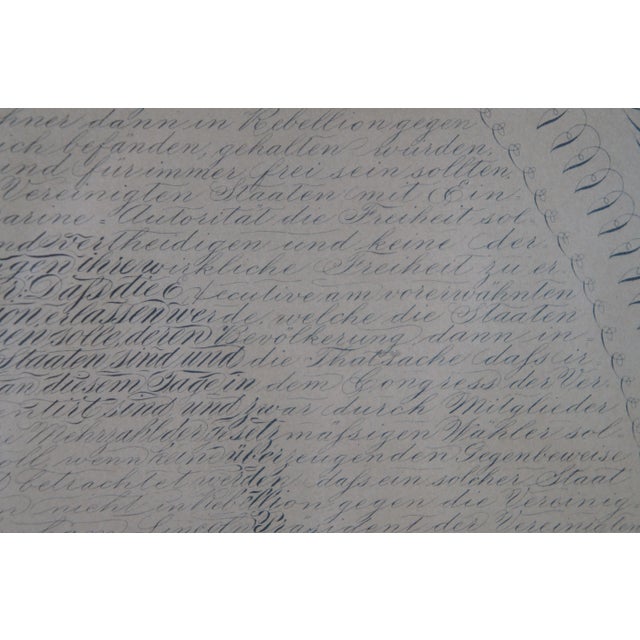 hner dann in Rebellion gegen
ich befänden, gehalten würden,
und für immer frei sein sollten,
Vereinigten Staaten mit Ein-
arine-Autorität die Freiheit sol-
nd vertheidigen und keine der-
gen ihre wirkliche Freiheit zu er-
Daß die Executive am vorerwähnten
on, erlassen werde, welche die Staaten
en solle, deren Bevölkerung dann in
Staaten sind und die Thatsache daſs ir-
an diesem Tage in dem Congress der Ver-
entirt sind und zwar durch Mitglieder
e Mehrzahl der gesetzmäſsigen Wähler sol-
oll, wenn keine überzeugenden Gegenbeweise
t betrachtet werden, daſs ein solcher Staat
n nicht in Rebellion gegen die Vereinig-
Lincoln Präsident der Vereinigten